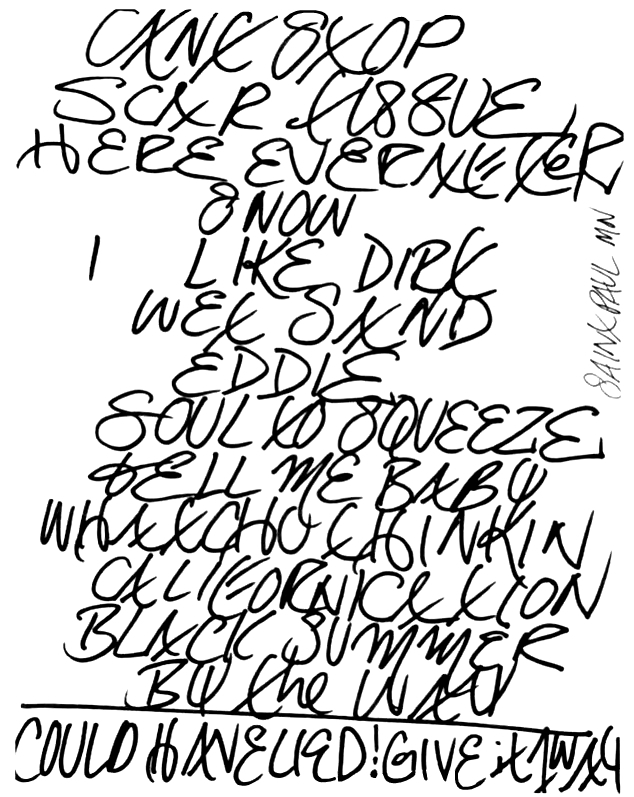 CAN'T STOP
SCAR TISSUE
HERE EVER AFTER
& NOW
I LIKE DIRT
WET SAND
EDDIE
SOUL TO SQUEEZE
TELL ME BABY
WHATCHU THINKIN
CALIFORNICATION
BLACK SUMMER
BY the WAY
COULD HAVE LIED! GIVE it AWAY
SAINT PAUL MN